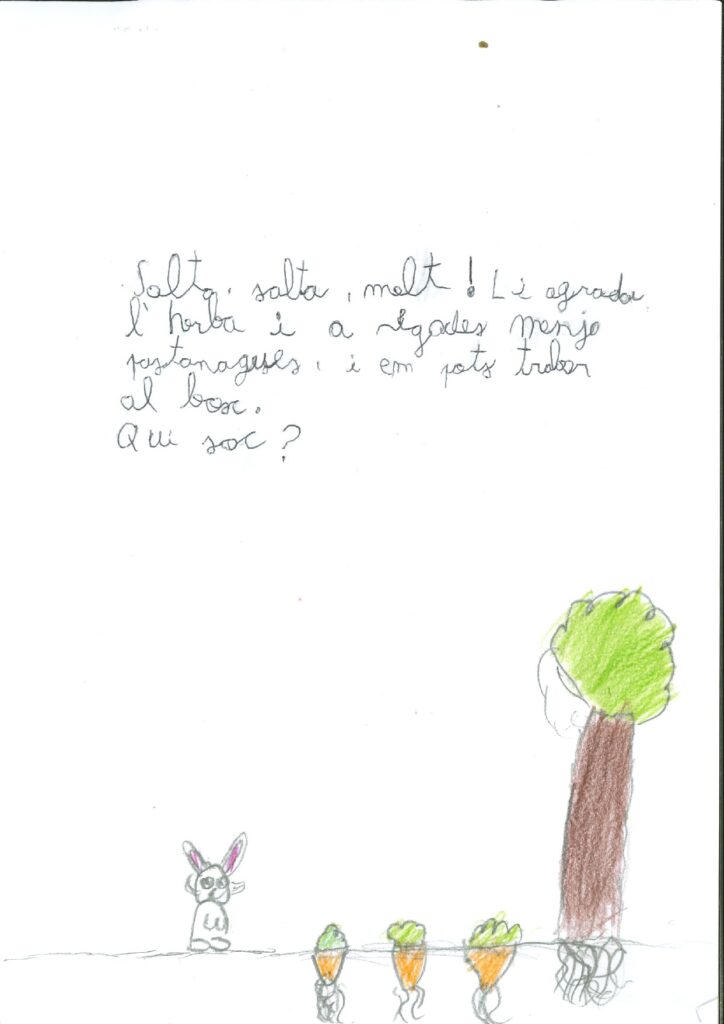 Salta, salta, molt! Li agrada
l'herba i a vegades menjo
pastanagues, i em pots trobar
al bosc.
Qui soc?